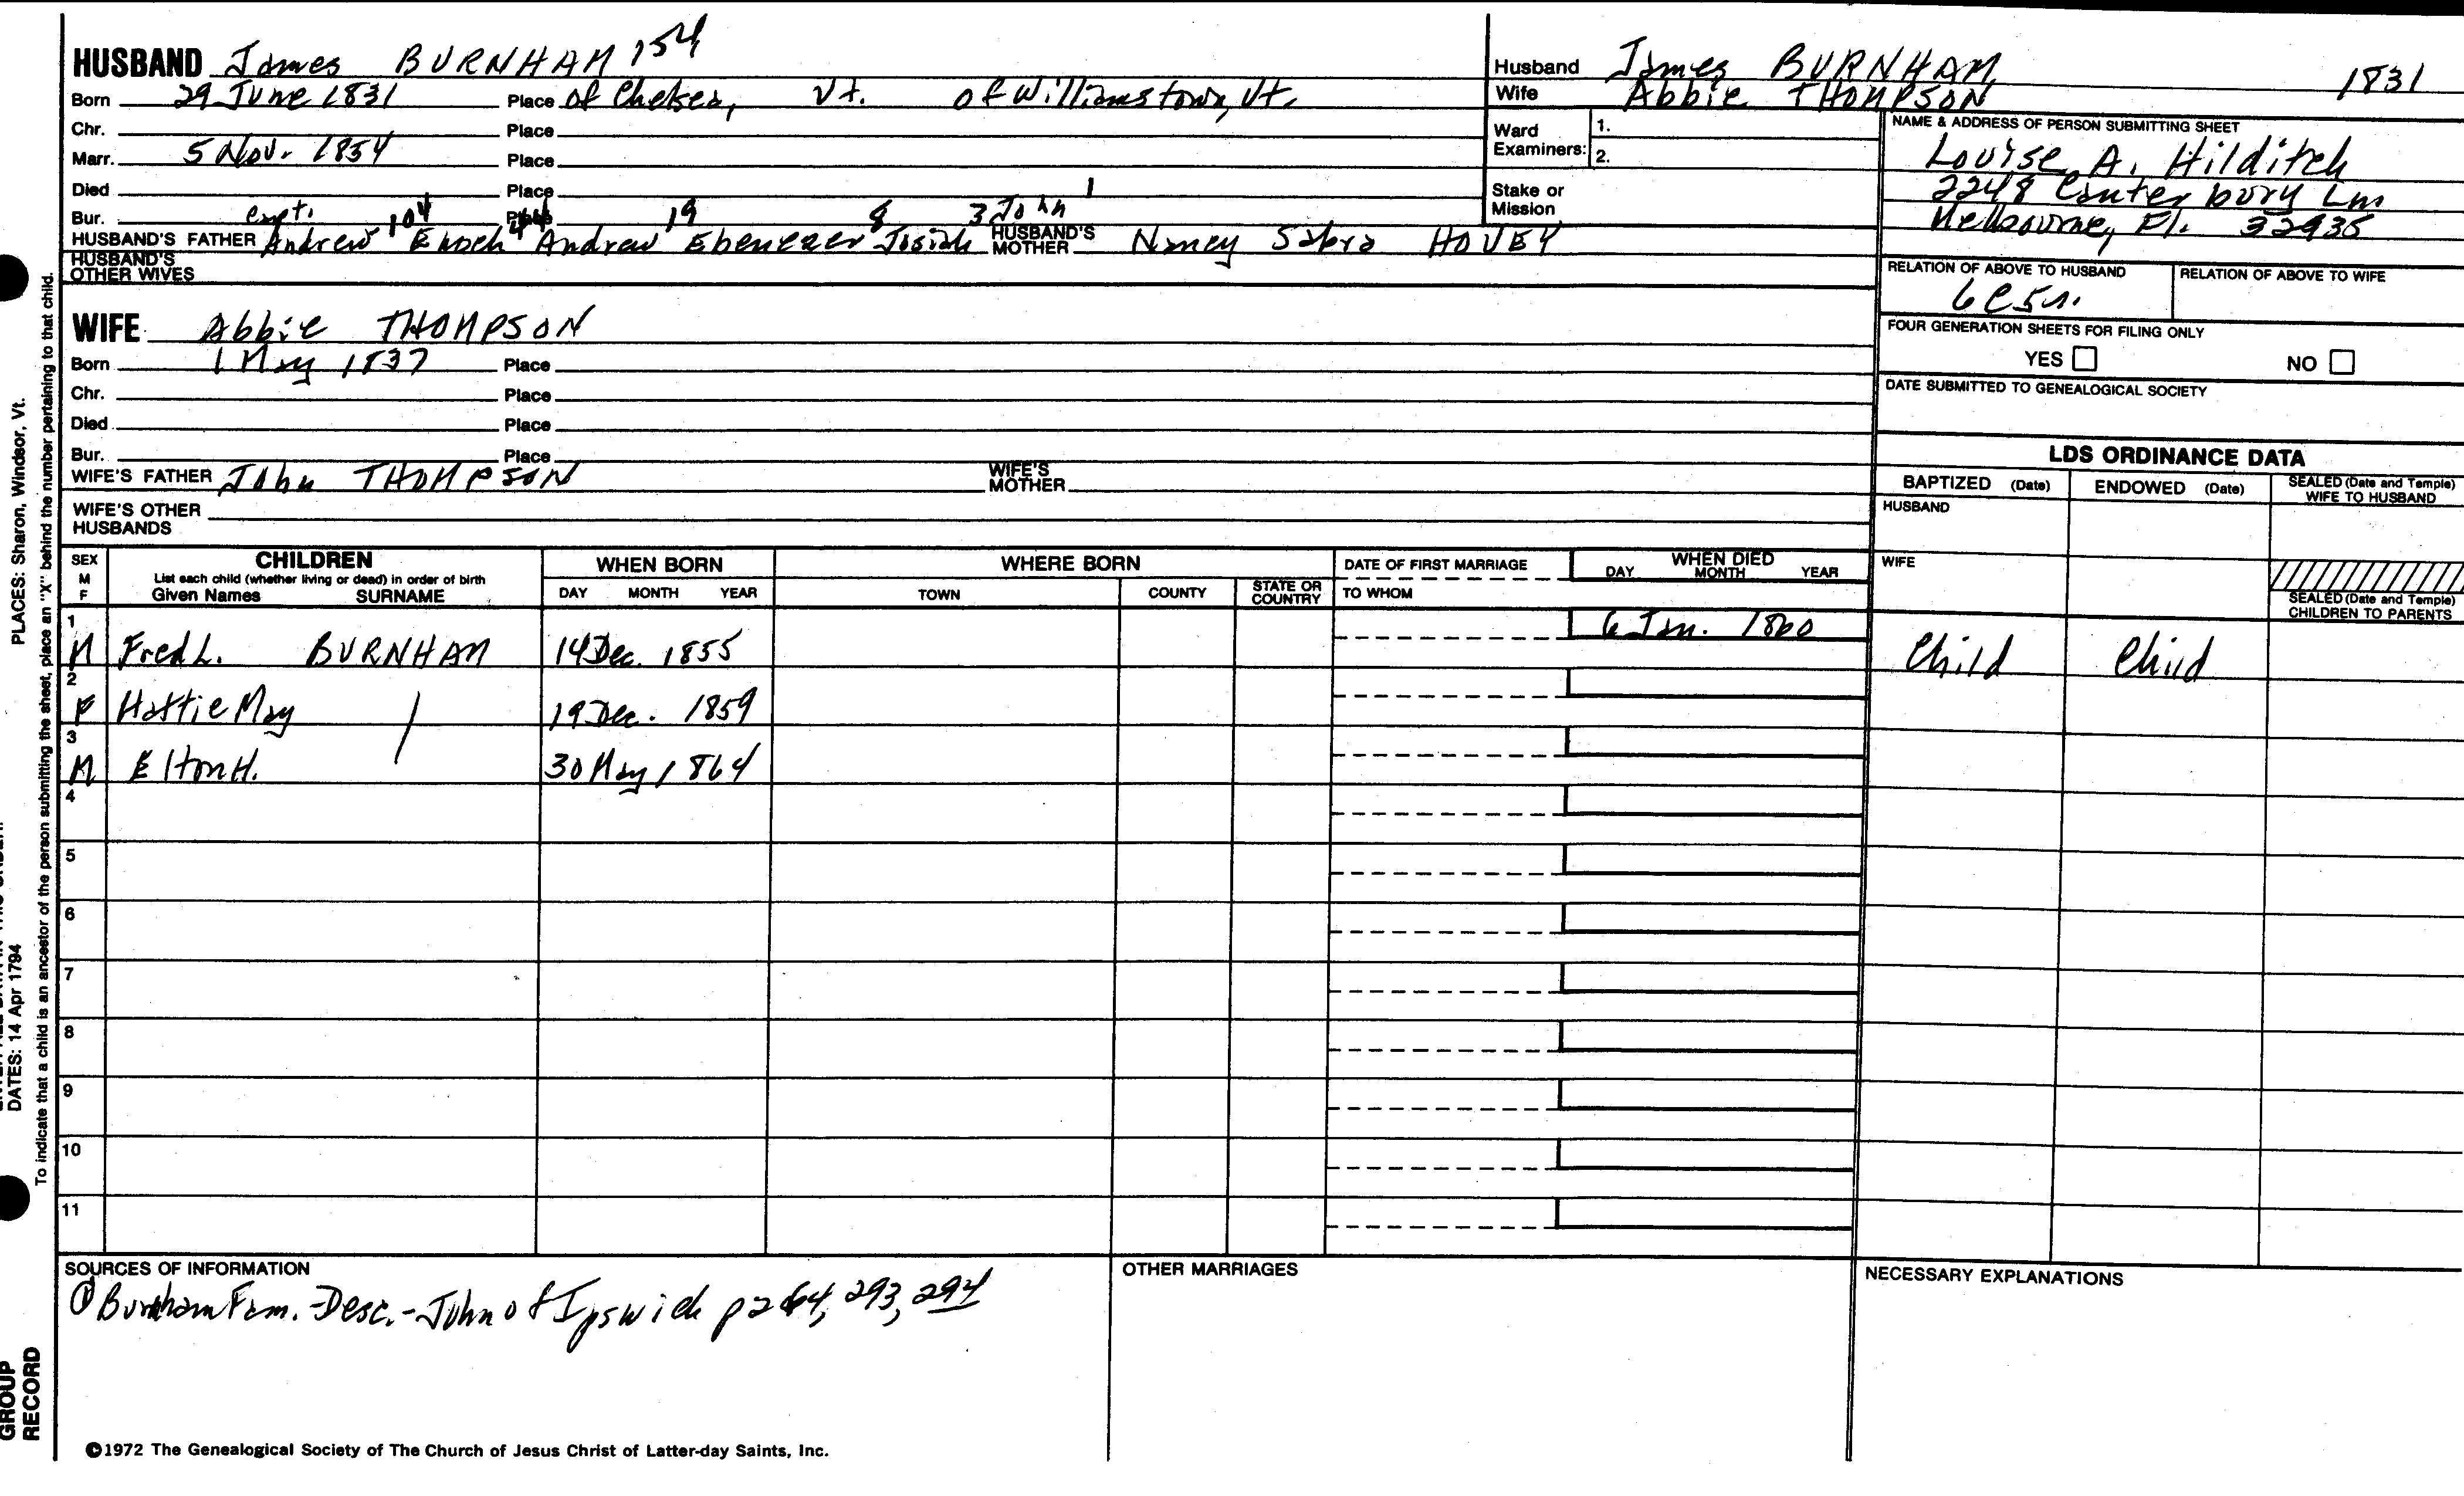 HUSBAND James BURNHAM 154
Born 29 June 1831 Place of Chelsea, Vt. of Williamstown, Vt.
Chr. Place
Marr. 5 Nov. 1854 Place
Died Place
Bur. Place
Capt. 104 44 19 8 3 John 1
HUSBAND'S FATHER Andrew Enoch Andrew Ebenezer Josiah HUSBAND'S MOTHER Nancy Sabra HOVEY
HUSBAND'S OTHER WIVES
WIFE Abbie THOMPSON
Born 1 May 1837 Place
Chr. Place
Died Place
Bur. Place
WIFE'S FATHER John THOMPSON WIFE'S MOTHER
WIFE'S OTHER HUSBANDS
Husband James BURNHAM 1831
Wife Abbie THOMPSON
Ward Examiners: 1.
2.
Stake or Mission
NAME & ADDRESS OF PERSON SUBMITTING SHEET
Louise A. Hilditch
2248 Canterbury Ln
Melbourne, Fl. 32935
RELATION OF ABOVE TO HUSBAND RELATION OF ABOVE TO WIFE
6C5r.
FOUR GENERATION SHEETS FOR FILING ONLY
YES NO
DATE SUBMITTED TO GENEALOGICAL SOCIETY
LDS ORDINANCE DATA
BAPTIZED (Date) ENDOWED (Date) SEALED (Date and Temple) WIFE TO HUSBAND
HUSBAND
WIFE
SEALED (Date and Temple) CHILDREN TO PARENTS
SEX M F CHILDREN WHEN BORN WHERE BORN DATE OF FIRST MARRIAGE WHEN DIED
List each child (whether living or dead) in order of birth
Given Names SURNAME DAY MONTH YEAR TOWN COUNTY STATE OR COUNTRY TO WHOM DAY MONTH YEAR
1 M Fred L. BURNHAM 14 Dec. 1855 6 Jan. 1860 Child Child
2 F Hattie May / 19 Dec. 1859
3 M Elton H. 30 May 1864
4
5
6
7
8
9
10
11
SOURCES OF INFORMATION
① Burnham Fam. - Desc. - John of Ipswich p 264, 293, 294
OTHER MARRIAGES
NECESSARY EXPLANATIONS
©1972 The Genealogical Society of The Church of Jesus Christ of Latter-day Saints, Inc.
PLACES: Sharon, Windsor, Vt.
DATES: 14 Apr 1794
To indicate that a child is an ancestor of the person submitting the sheet, place an "X" behind the number pertaining to that child.
GROUP
RECORD